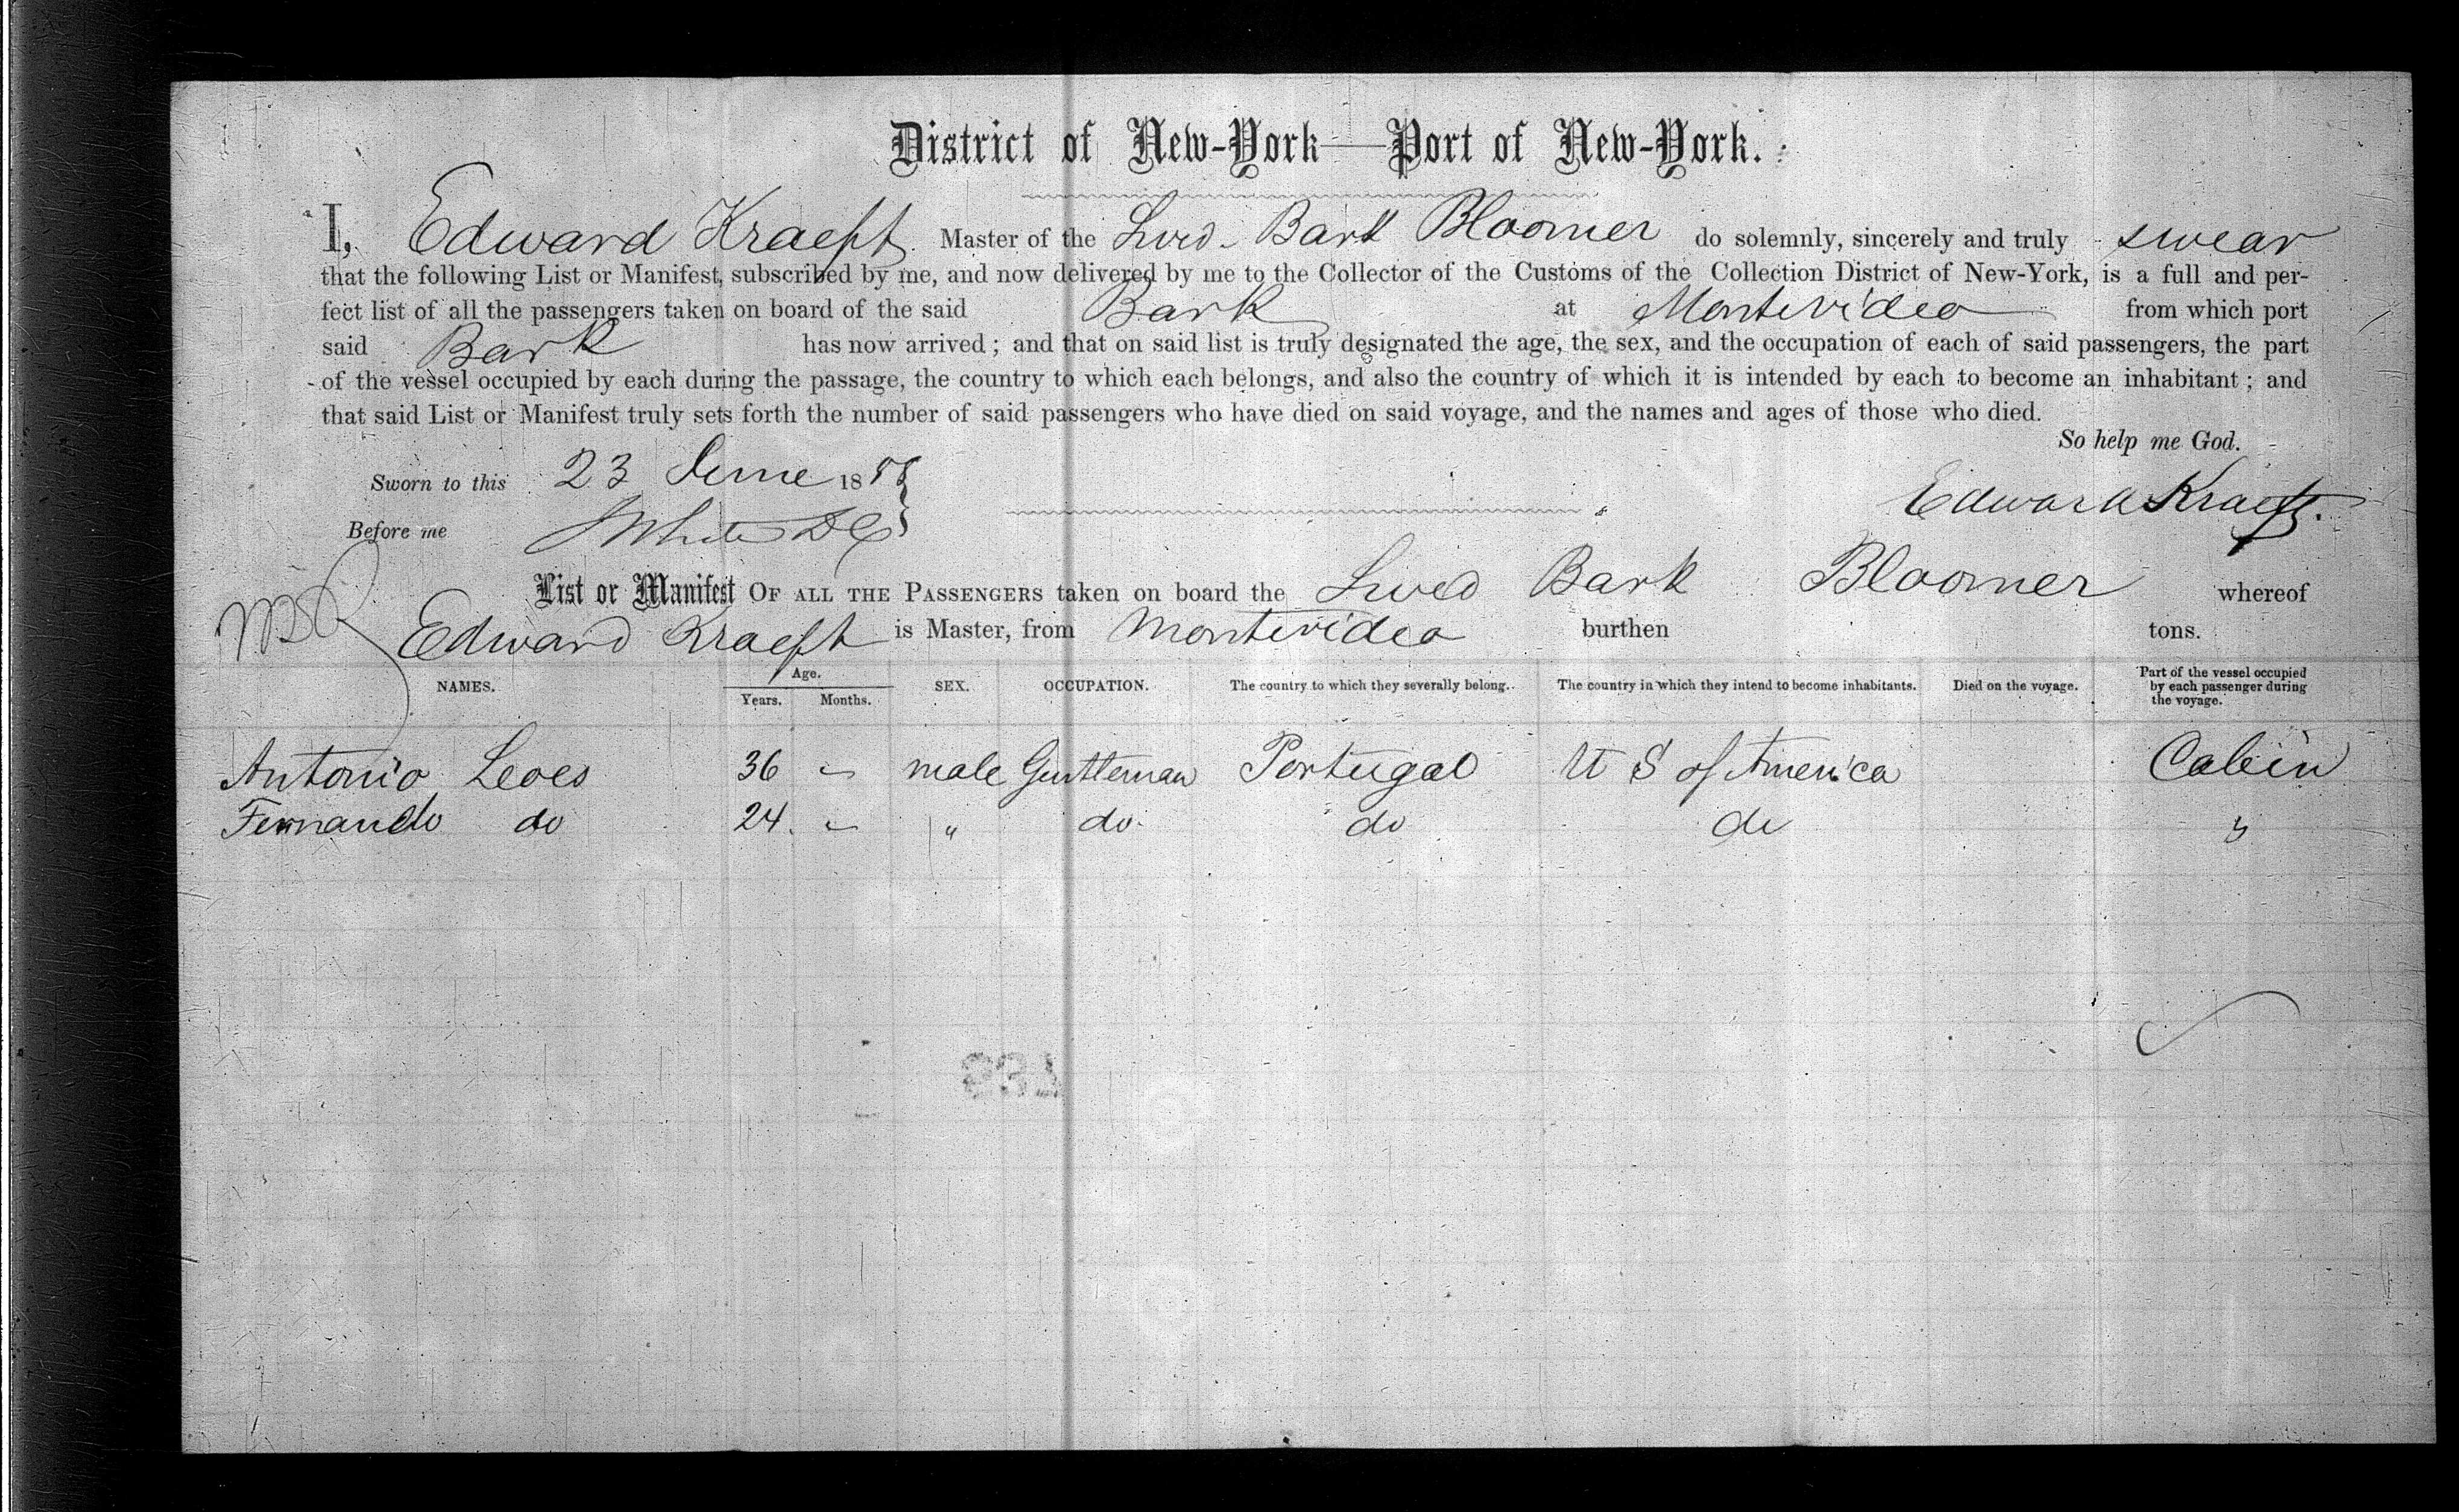 District of New-York—Port of New-York.
I, Edward Kraefft. Master of the Swed. Bark Bloomer do solemnly, sincerely and truly swear
that the following List or Manifest, subscribed by me, and now delivered by me to the Collector of the Customs of the Collection District of New-York, is a full and per-
fect list of all the passengers taken on board of the said Bark at Montevideo from which port
said Bark has now arrived; and that on said list is truly designated the age, the sex, and the occupation of each of said passengers, the part
of the vessel occupied by each during the passage, the country to which each belongs, and also the country of which it is intended by each to become an inhabitant; and
that said List or Manifest truly sets forth the number of said passengers who have died on said voyage, and the names and ages of those who died.
So help me God.
Sworn to this 23 June 18
Edward Kraefft.
Before me White DC
List or Manifest OF ALL THE PASSENGERS taken on board the Swed Bark Bloomer whereof
Edward Kraefft is Master, from Montevideo burthen tons.
NAMES. Age. Years. Months. SEX. OCCUPATION. The country to which they severally belong. The country in which they intend to become inhabitants. Died on the voyage. Part of the vessel occupied by each passenger during the voyage.
Antonio Leoes 36 " male Gentleman Portugal U S of America Cabin
Fernando do 24. " " do. do do "